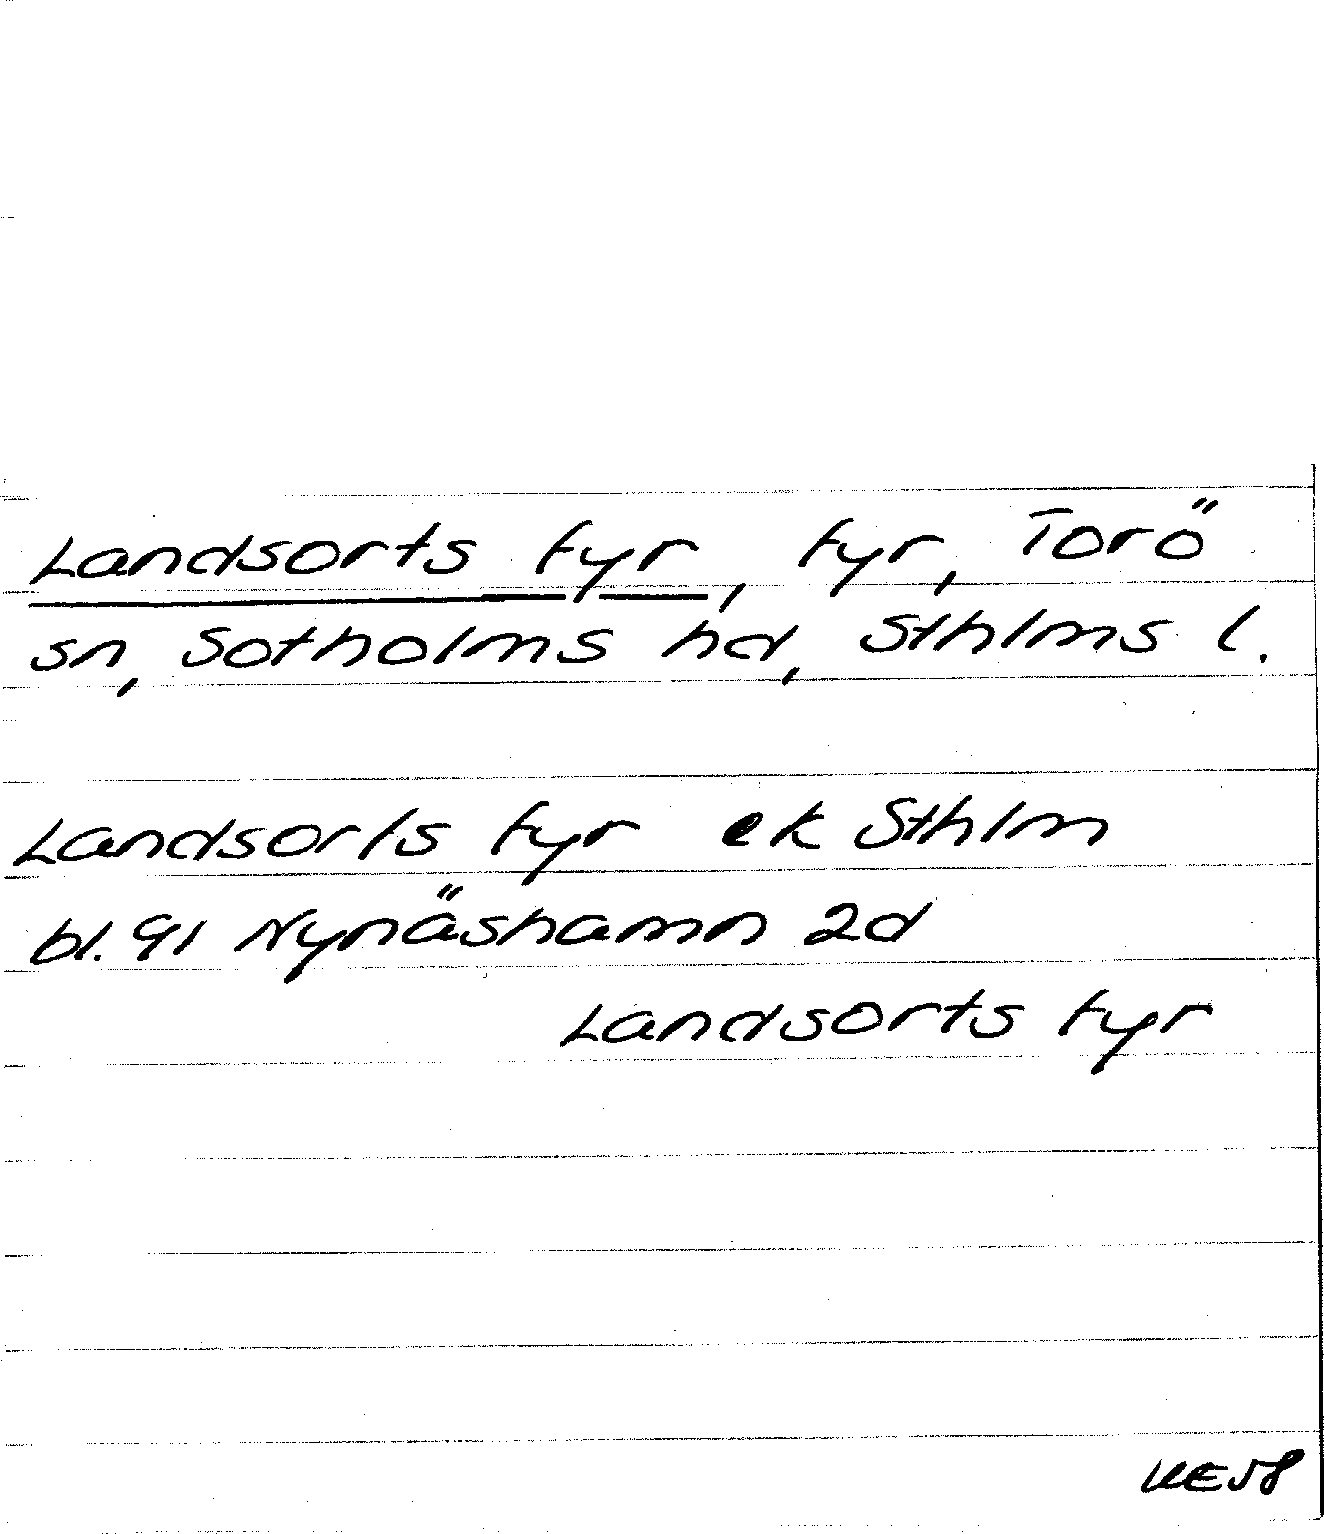 Landsorts fyr, fyr, Torö
sn, Sotholms hd, Sthlms l.
Landsorts fyr ek Sthlm
bl. 91 Nynäshamn 2d
Landsorts fyr